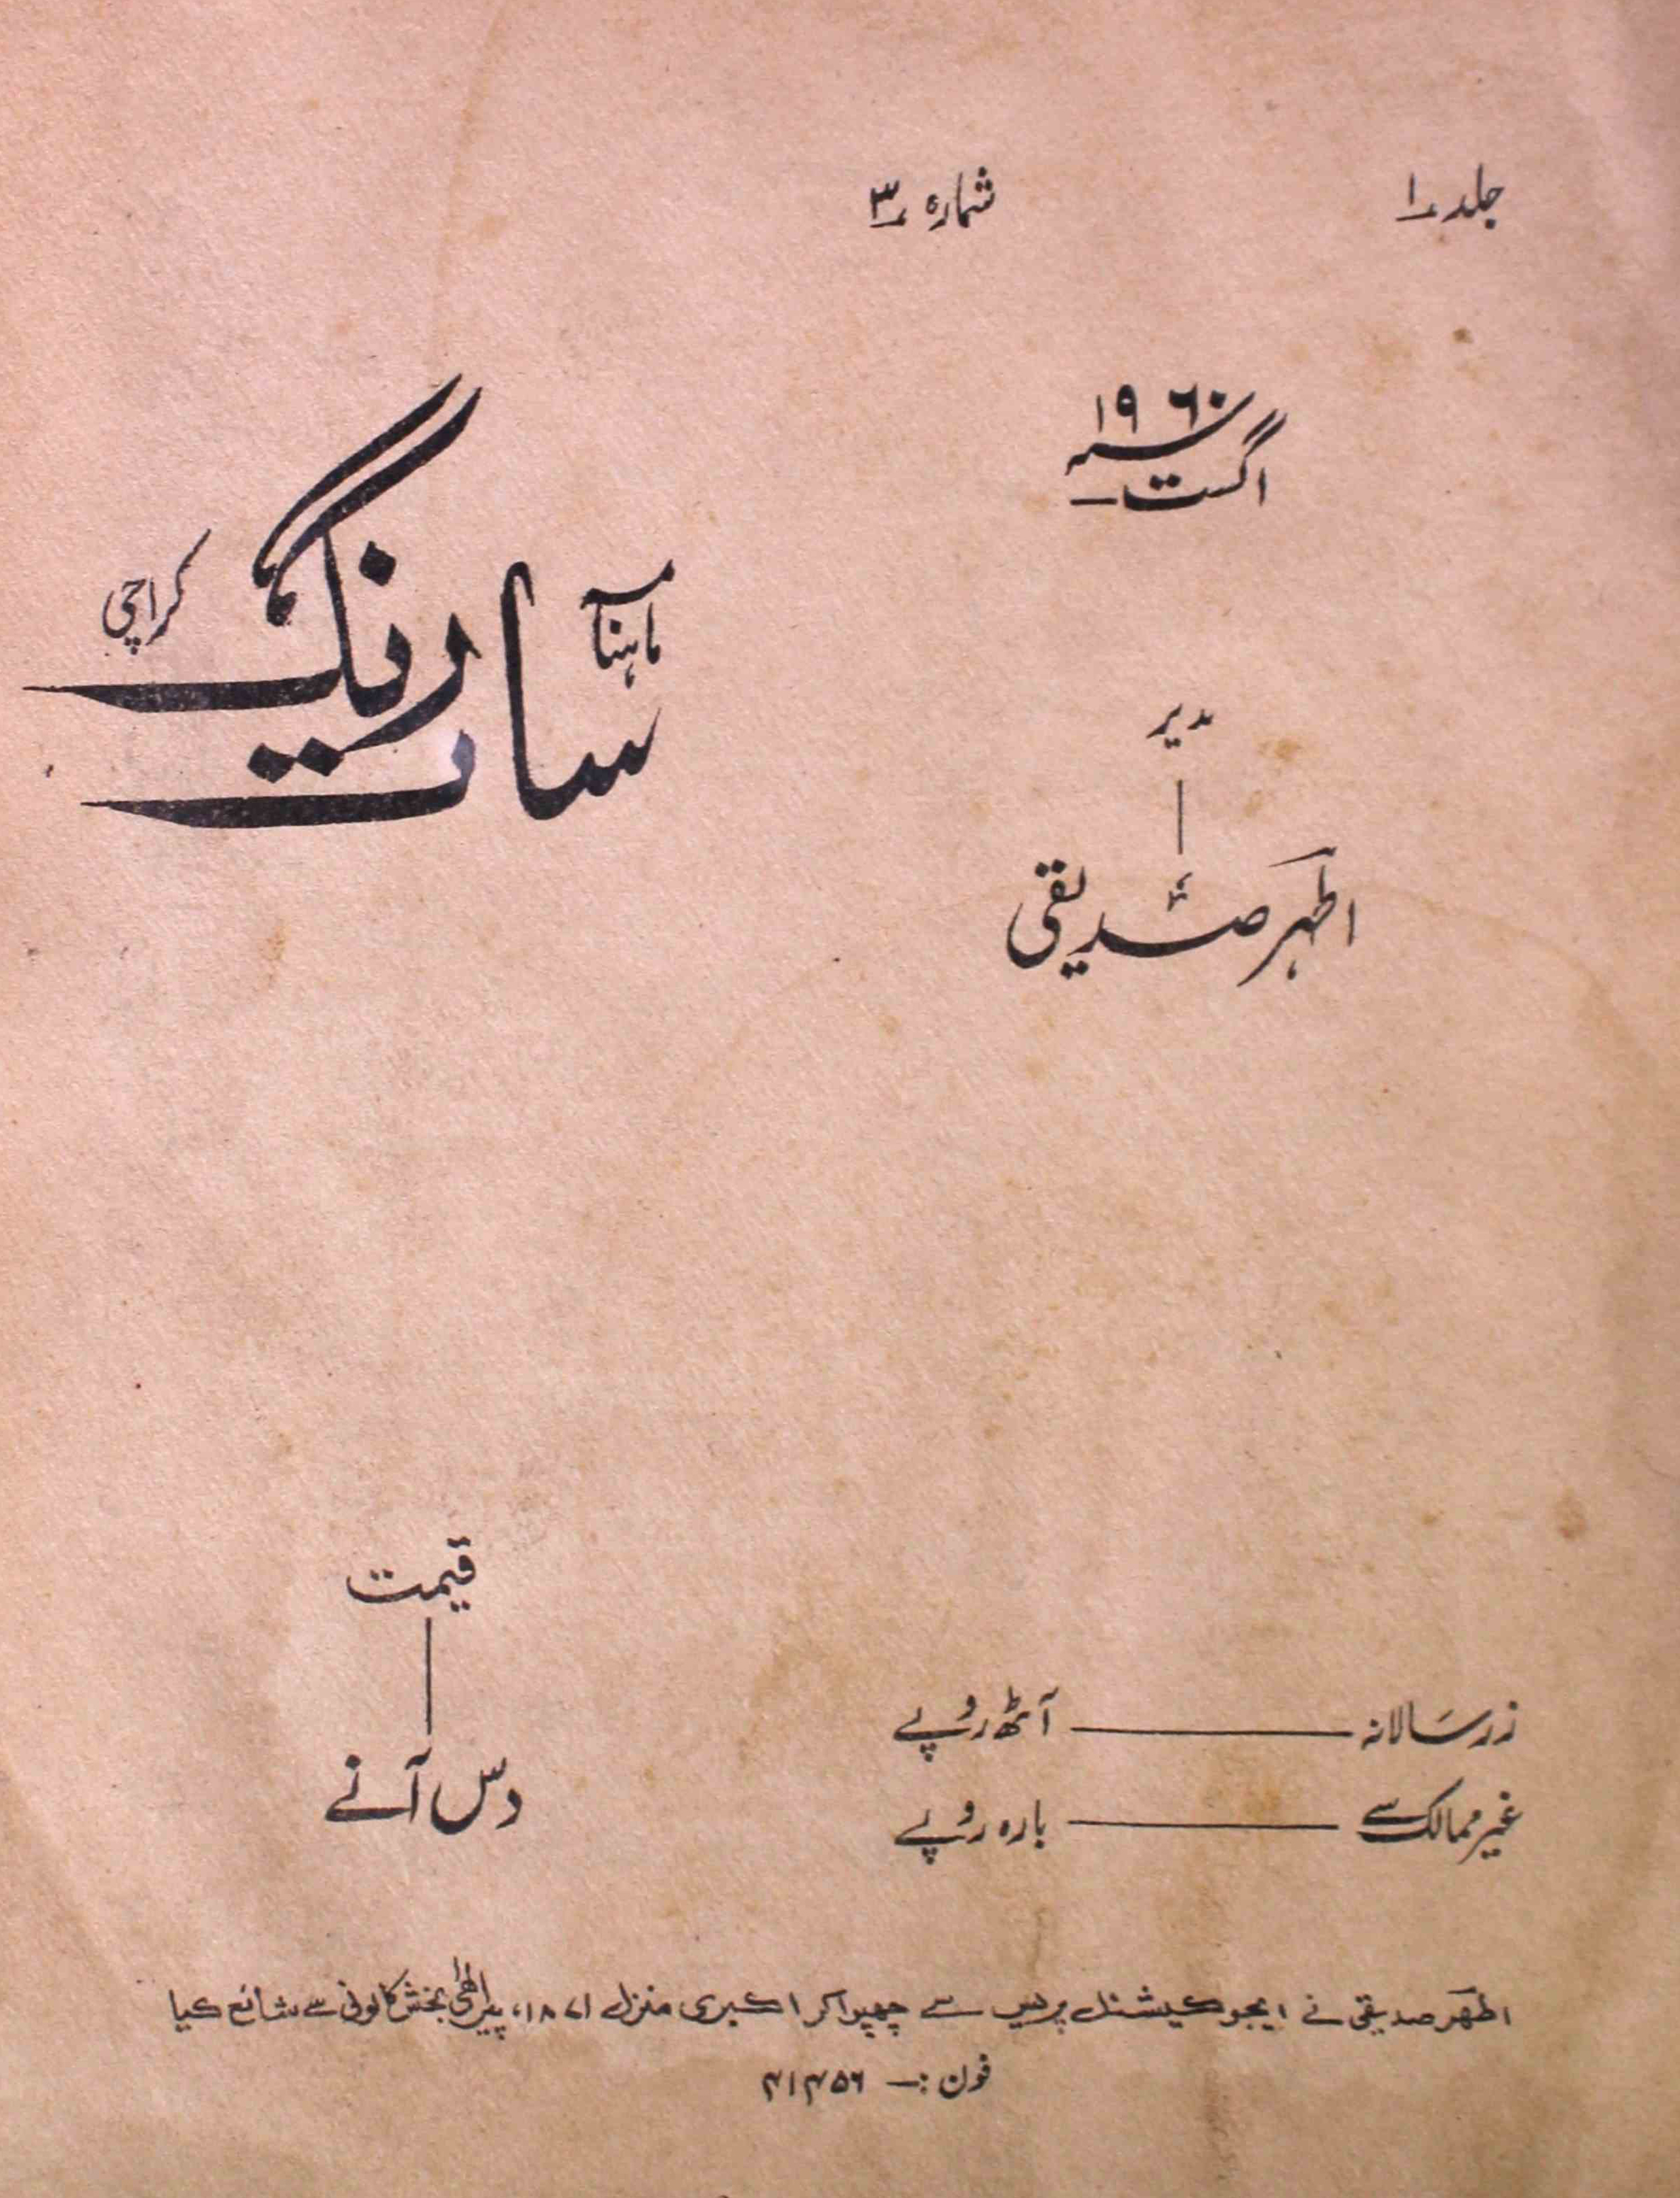 جلد ۱
شماره ۳
اگست ۱۹۶۰ء
ماہنامہ
سات رنگ
کراچی
مدیر
اطہر صدیقی
قیمت
دس آنے
زر سالانہ ——— آٹھ روپے
غیر ممالک سے ——— بارہ روپے
اطہر صدیقی نے ایجوکیشنل پریس سے چھپوا کر اکبری منزل ۱۸۷۱، پیر الٰہی بخش کالونی سے شائع کیا
فون :— ۴۱۴۵۶